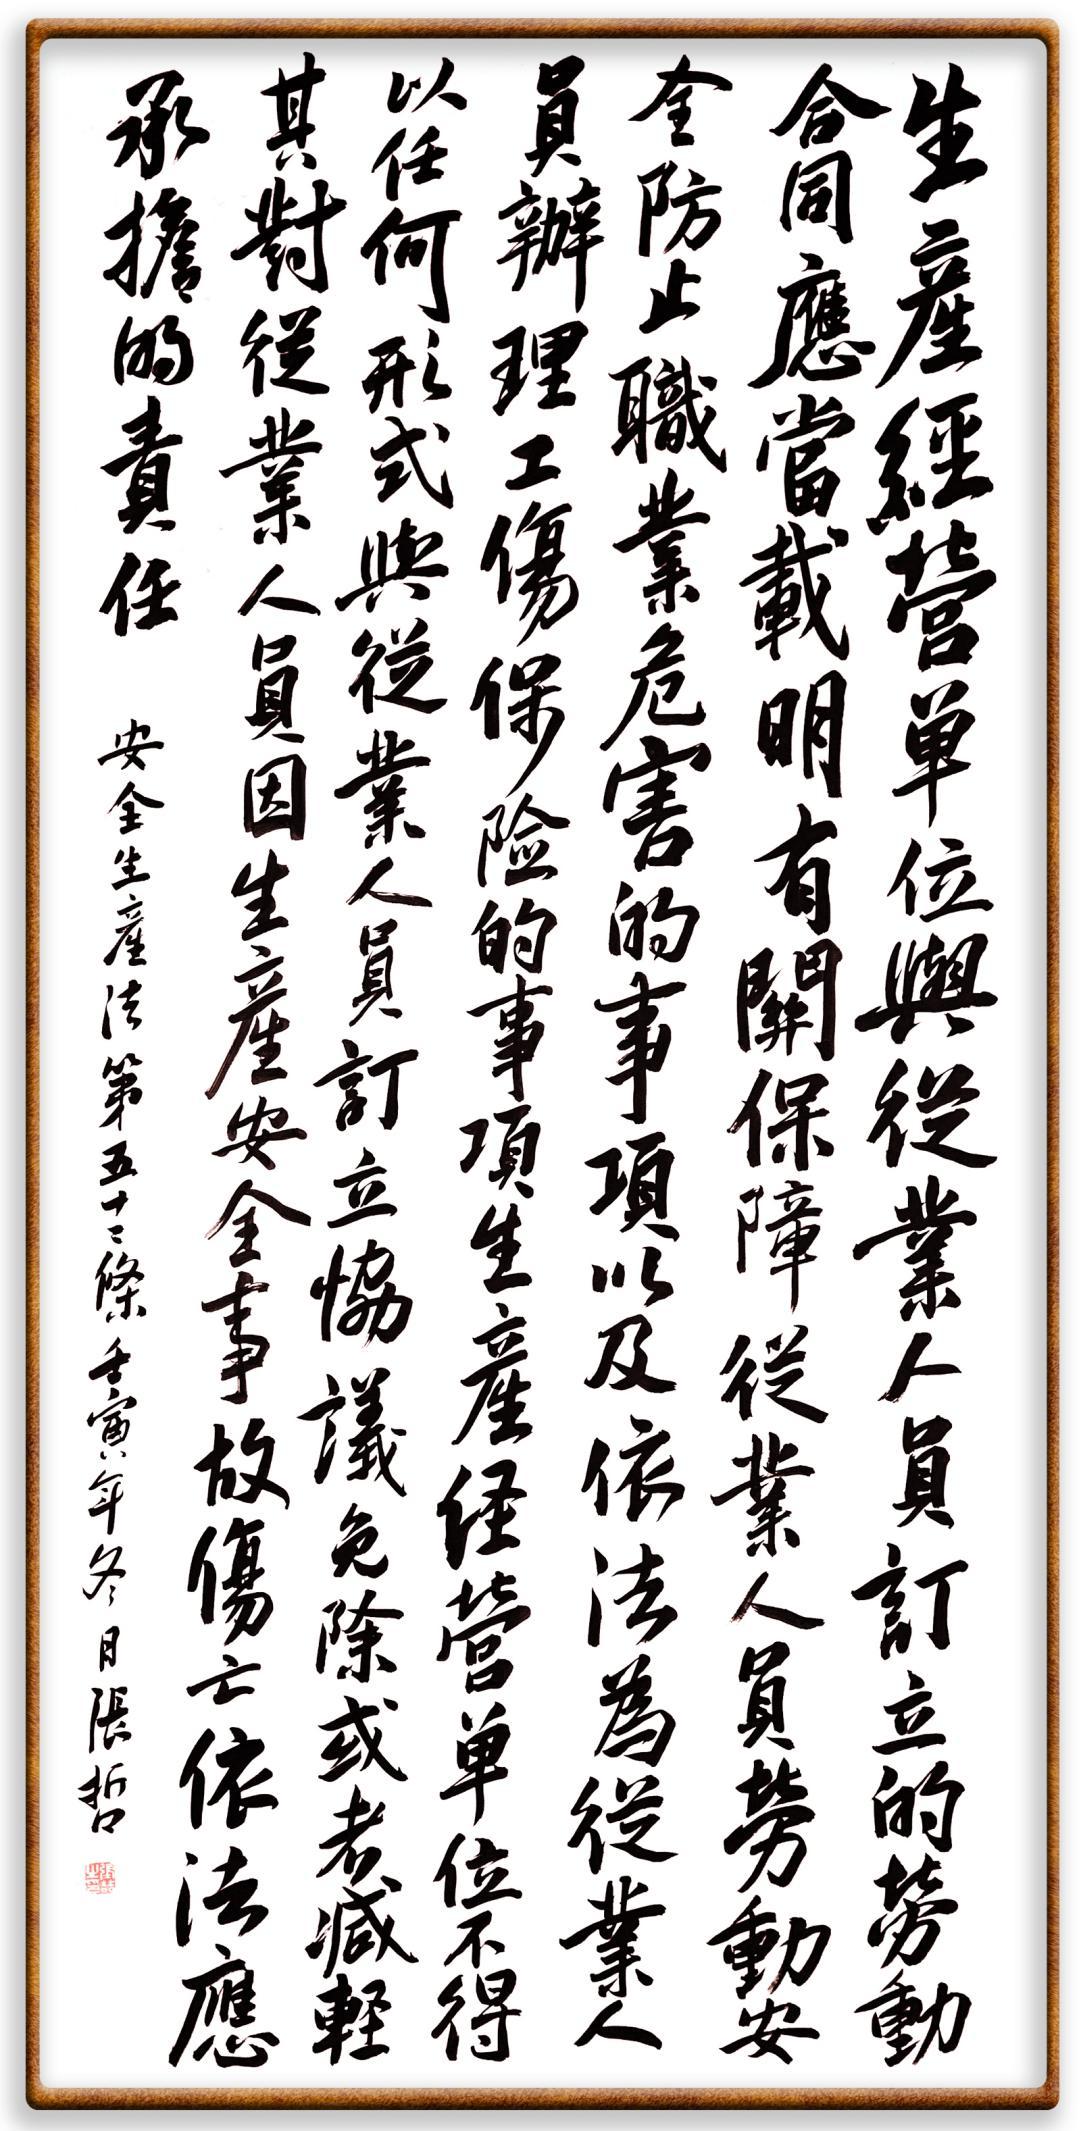 生產經营单位與從業人員訂立的勞動
合同應當載明有關保障從業人員勞動安
全防止職業危害的事項以及依法為從業人
員辦理工傷保险的事項生產経营单位不得
以任何形式與從業人員訂立協議免除或者减軽
其對從業人員因生產安全事故傷亡依法應
承擔的責任
安全生產法第五十二條壬寅年冬月張哲